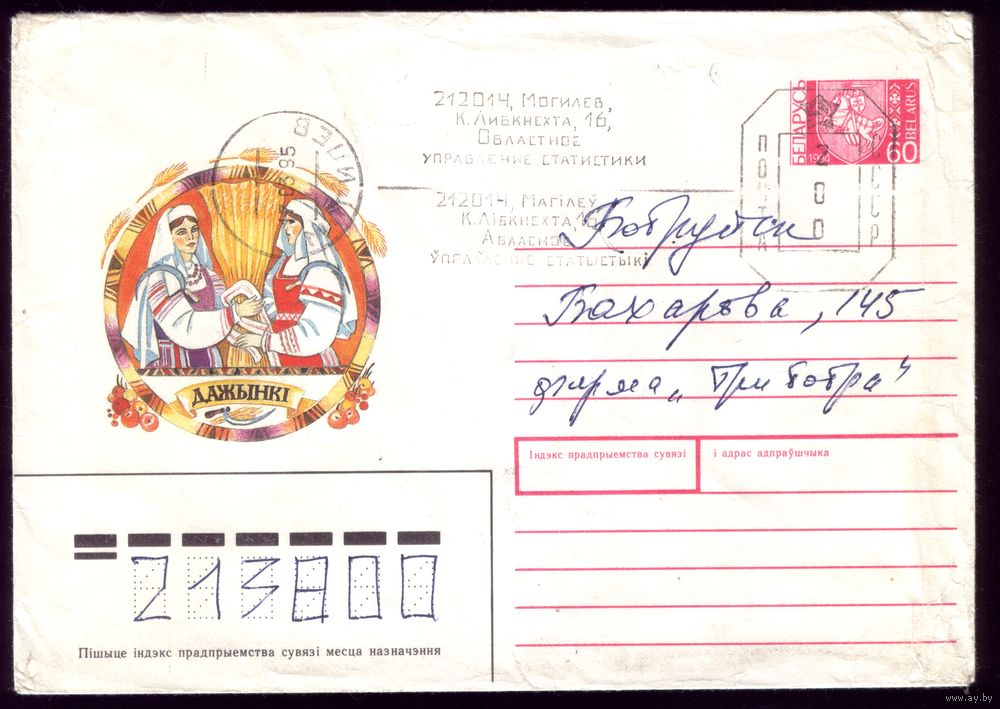 212014, Могилев,
К. Либкнехта, 16,
Областное
управление статистики
212014, Магілеў
К. Лібкнехта, 16
Абласное
ўпраўленне статыстыкі
БЕЛАРУСЬ
1994
60
BELARUS
ПОЧТА
СССР
200
95
Бобруйск
Бахарова, 145
фирма „Три бобра“
ДАЖЫНКІ
Індэкс прадпрыемства сувязі і адрас адпраўшчыка
213800
Пішыце індэкс прадпрыемства сувязі месца назначэння
www.ay.by